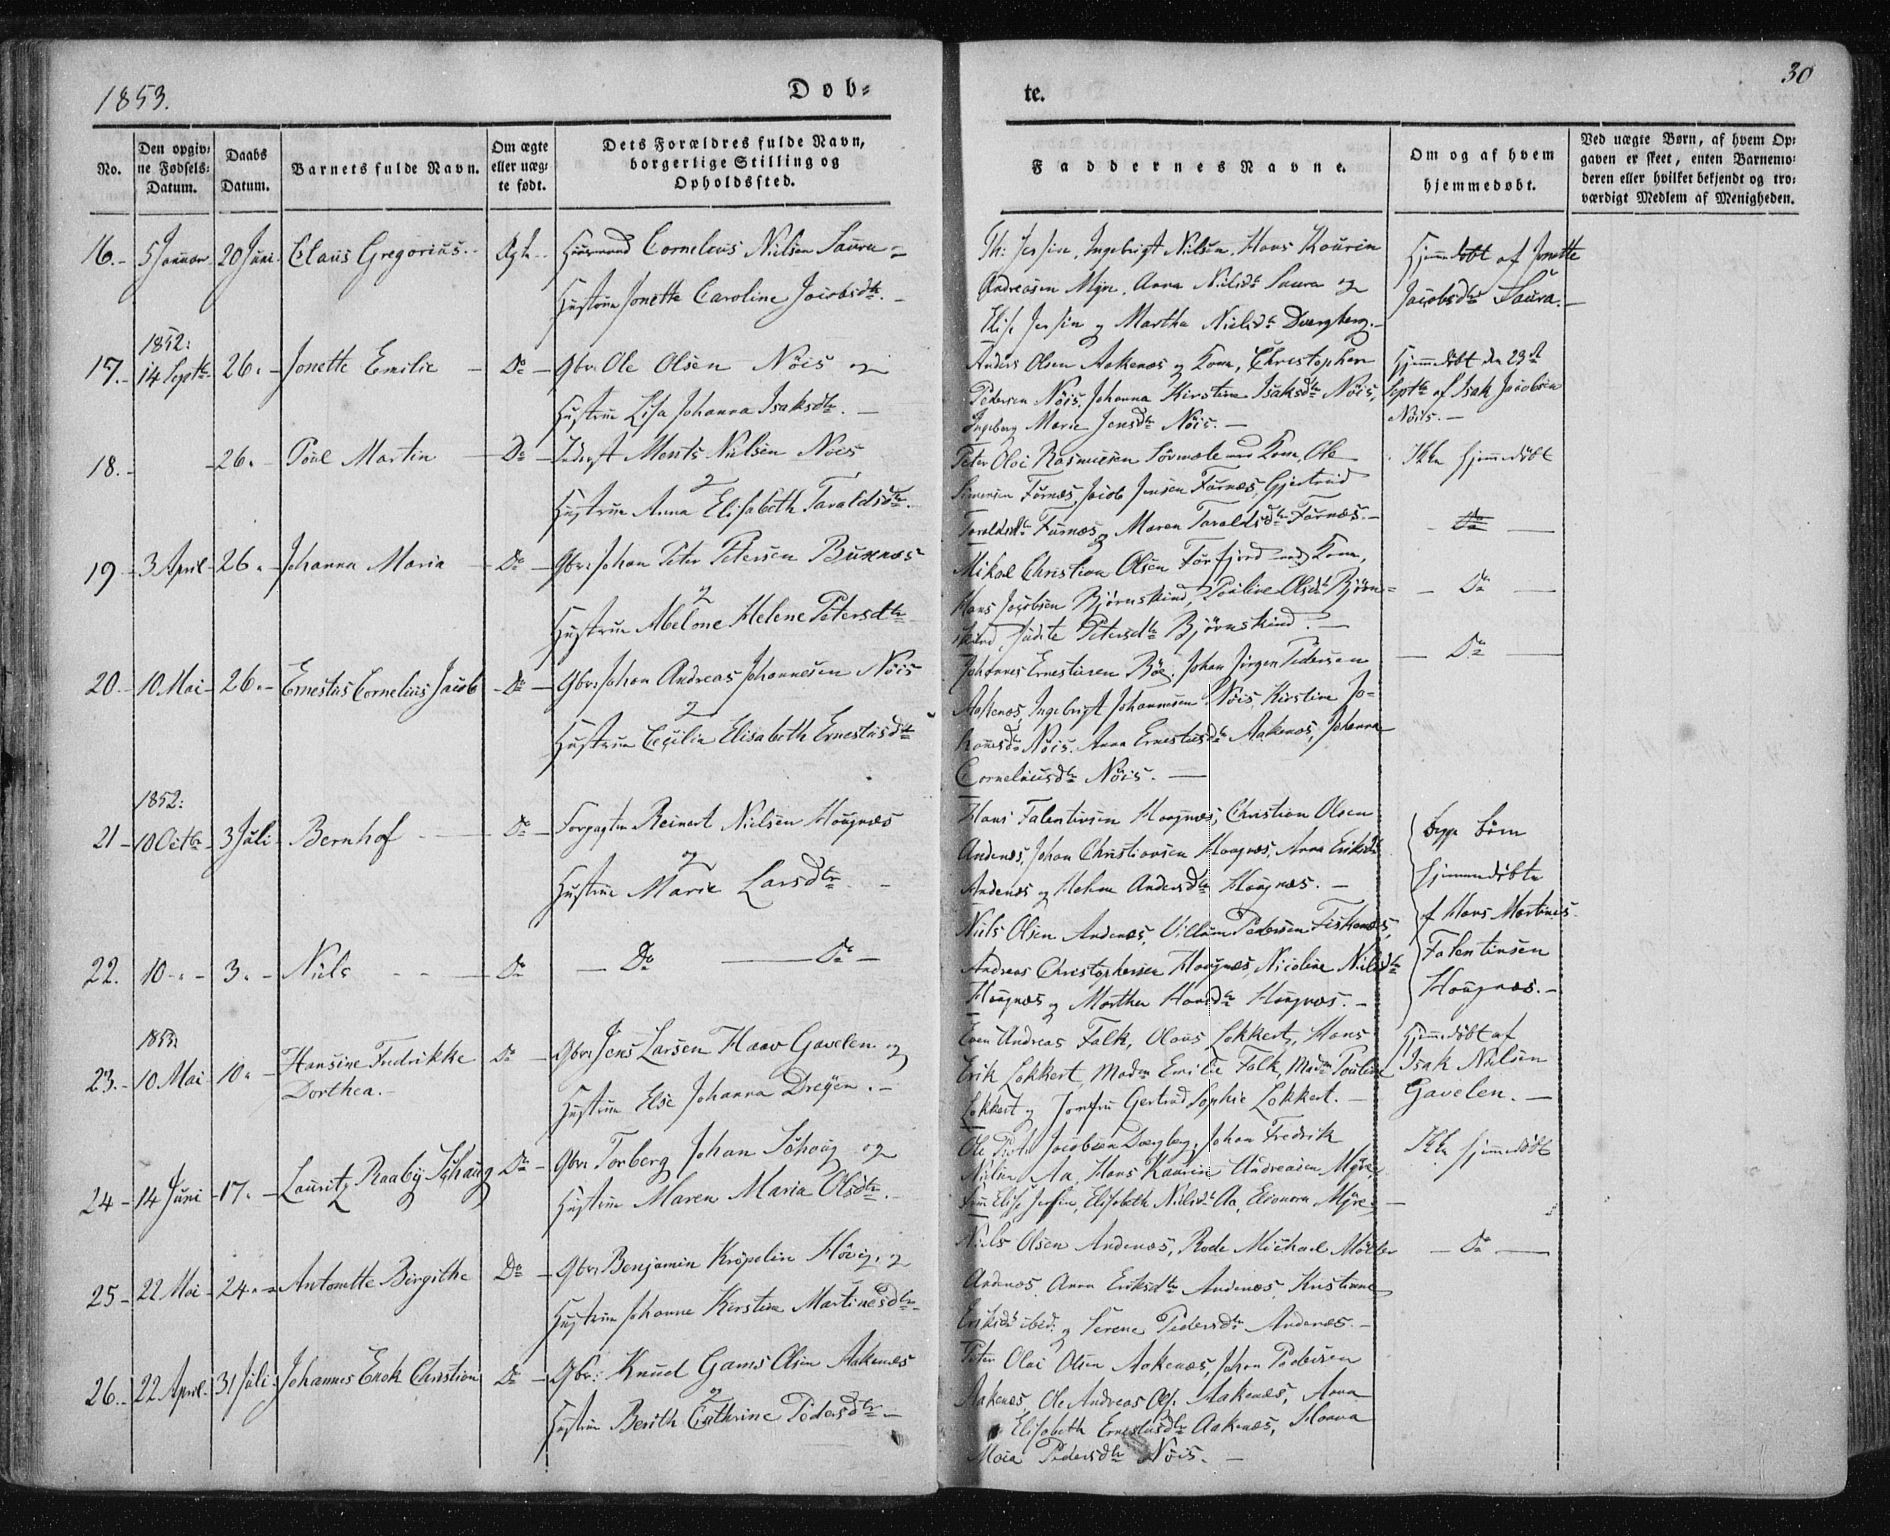 1853.
Døb=
te.
30
No.
Den opgiv=
ne Fødsels=
Datum.
Daabs
Datum.
Barnets fulde Navn.
Om ægte
eller uæg=
te født.
Dets Forældres fulde Navn,
borgerlige Stilling og
Opholdssted.
Faddernes Navne.
Om og af hvem
hjemmedøbt.
Ved uægte Børn, af hvem Op=
gaven er skeet, enten Barnemo=
deren eller hvilket bekjendt og tro=
værdigt Medlem af Menigheden.
16. 5 Januar 20 Juni Claus Gregorius. Ægte Huusmand Cornelius Nielsen Saura
Hustrue Jonette Caroline Jacobsdtr.
Ingebrigt Nilsen, Hans Kaurin
Andreasen Myre, Anna Nielsdt Saura og
Elise Jessen og Martha Nielsdtr Dverberg.
Hjemmedøbt af Jonette
Jacobsdtr Saura.
1852:
17. 14 Septbr 26. Jonette Emilie Do Gbr: Ole Olsen Nöis og
Hustrue Lisa Johanna Isaksdtr.
Anders Olsen Aakenæs og Kone, Christopher
Pedersen Nöis, Johanna Kirstine Isaksdtr Nöis,
Ingeborg Marie Jensdtr Nöis.
Hjemmedøbt den 23de
Septbr af Isak Jacobsen
Nöis.
18. 26. Poul Martin Do Inderst Ments Nielsen Nöis
og
Hustrue Anna Elisabeth Taraldsdtr.
Peter Oloi Rasmussen med Kone, Ole
Simonsen Fornæs, Jacob Jensen Fornæs, Gjertrud
Taraldsdtr Fornæs og Maren Taraldsdtr Fornæs.
Ikke hjemmedøbt
Do
19 3 April 26. Johanna Maria Do Gbr: Johan Peter Petersen Buxnæs
og
Hustrue Abelone Helene Petersdtr
Mikal Christian Olsen Forfjord med Kone,
Hans Jacobsen Bjørnskind, Pauline Olsdtr Bjørn=
skind, Judite Petersdtr Bjørnskind.
Do
20 10 Mai 26. Ernestus Cornelius Jacob Do Gbr: Johan Andreas Johannesen Nöis
og
Hustrue Cecilia Elisabeth Ernestusdtr
Johannes Ernestusen Böe, Johan Jörgen Pedersen
Aakenæs, Ingebrigt Johannesen Nöis, Kirstine Jo=
hannesdtr Nöis, Anna Ernestusdtr Aakenæs, Johanna
Corneliusdtr Nöis.
Do
1852:
21 10 Octbr 3 Juli Bernhof Do Forpagter Reinert Nielsen Haugnæs
og
Hustrue Marie Larsdtr.
Hans Falentinsen Haugnæs, Christian Olsen
Andenæs, Johan Christiansen Haugnæs, Anna Eriksdtr
Andenæs og Helene Andersdtr Haugnæs.
begge børn
hjemmedøbte
af Hans Martinus
Falentinsen
Haugnæs.
22. 10 3. Niels Do Do Do
Niels Olsen Andenæs, Villum Pedersen Fiskenæs,
Andreas Christophersen Haugnæs, Nicoline Nielsdtr
Haugnæs og Marthe Hansdtr Haugnæs.
1853.
23. 10 Mai 10. Hansine Fredrikke
Dorthea.
Do Gbr: Jens Larsen Haav Gavelen og
Hustrue Else Johanna Dreyer.
Even Andreas Falk, Olaus Lokkert, Hans
Erik Lokkert, Madm Emilie Falk, Madm Pauline
Lokkert og Jomfru Gertrud Sophie Lokkert.
Hjemmedøbt af
Isak Nilsen
Gavelen.
24 14 Juni 17. Lauritz Raaby Schaug Do Gbr: Torberg Johan Schaug og
Hustrue Maren Maria Olsdtr.
Ole Jacobsen Dverberg, Johan Fredrik
Nielsen Aa, Hans Kaurin Andreasen Myre,
Elise Jessen, Elisabeth Nielsdt Aa, Elionora Myre
Ikke hjemmedøbt
25 22 Mai 24. Antonette Birgithe Do Gbr: Benjamin Kröpelin Höieg og
Hustrue Johanne Kirstine Martinusdtr
Niels Olsen Andenæs, Rode Michael Möller
Andenæs, Anna Eriksdtr Andenæs, Kristianne
Eriksdt ibid: og Serene Pedersdtr Andenæs.
Do
26. 22 April 31 Juli Johannes Enok Christian Do Gbr: Knud Gams Olsen Aakenæs
og
Hustrue Berith Cathrine Pedersdtr
Peter Olai Olsen Aakenæs, Johan Pedersen
Aakenæs, Ole Andreas Ols. Aakenæs, Anna
Elisabeth Ernestusdtr Aakenæs,
Pedersdtr Nöis.